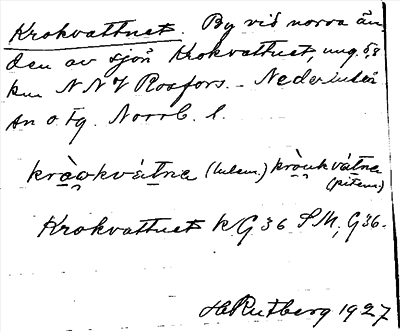 Krokvattnet. By vid norra än-
den av sjön Krokvattnet, ung. 5,8
km NNV Rosfors. Nederluleå
sn o tg. Norrb. l.
krò̭kvát̯na (lulem.) kròukvát̯na
(pitem.)
Krokvattnet kG 36 SM, G 36.
H Rutberg 1927